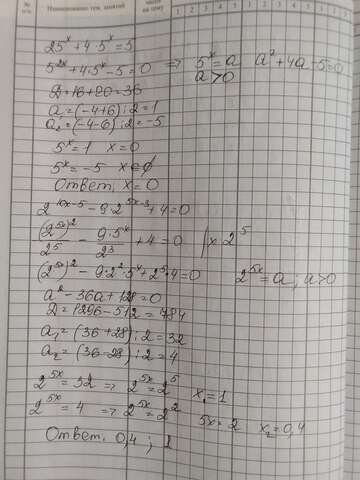 № п/п Наименование тем, занятий часов на тему 1 2 3 4 5 1 2 3 4 5
25^x + 4·5^x = 5
5^{2x} + 4·5^x - 5 = 0 => 5^x = a a^2 + 4a - 5 = 0
a > 0
D = 16 + 20 = 36
a₁ = (-4+6) : 2 = 1
a₂ = (-4-6) : 2 = -5
5^x = 1 x = 0
5^x = -5 x ∈ ∅
Ответ. x = 0
2^{10x-5} - 9·2^{5x-3} + 4 = 0
(2^{5x})^2/2^5 - 9·5^x/2^3 + 4 = 0 | x 2^5
(2^{5x})^2 - 9·2^2·5^x + 2^5·4 = 0 2^{5x} = a ; a > 0
a^2 - 36a + 128 = 0
D = 1296 - 512 = 784
a₁ = (36+28) : 2 = 32
a₂ = (36-28) : 2 = 4
2^{5x} = 32 => 2^{5x} = 2^5 x₁ = 1
2^{5x} = 4 => 2^{5x} = 2^2 5x = 2 x₂ = 0,4
Ответ. 0,4 ; 1